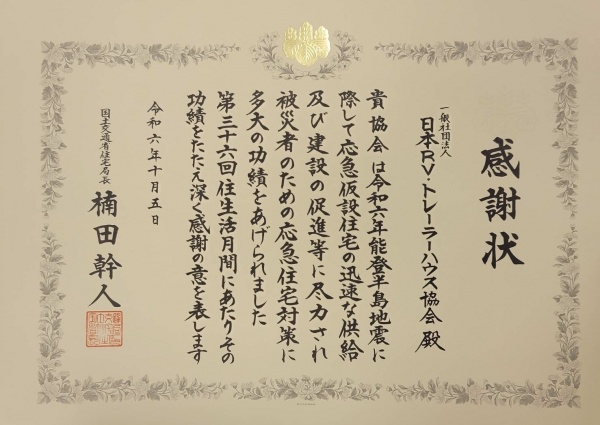 感謝状
一般社団法人
日本RV・トレーラーハウス協会 殿
貴協会は令和六年能登半島地震に
際して応急仮設住宅の迅速な供給
及び建設の促進等に尽力され
被災者のための応急住宅対策に
多大の功績をあげられました
第三十六回住生活月間にあたりその
功績をたたえ深く感謝の意を表します
令和六年十月五日
国土交通省住宅局長
楠田幹人